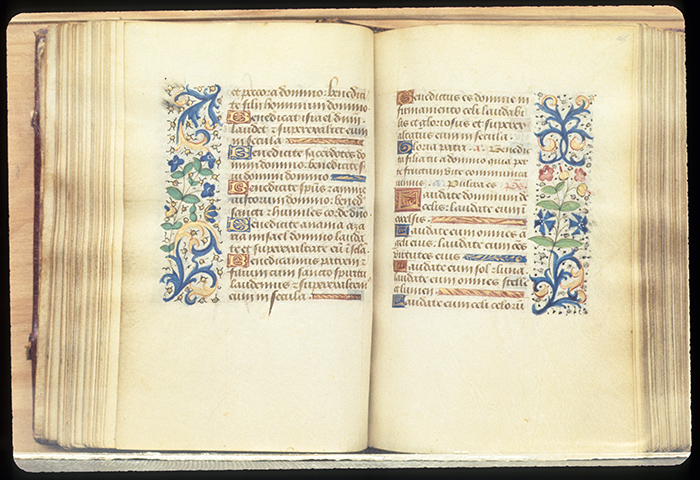 et pecora domino: benedici
te filii hominum domino.
Benedicat israel dñm
laudet & superexaltet eum
in secula
Benedicite sacerdotes do
mini domino: benedicite s
domini domino.
Benedicite spūs & anime
iustorum domino: bened
sancti & humiles corde dño
Benedicite anania aza
ria misael domino lauda
te et superexaltate eū ī sc̄la.
Benedicamus patrem &
filium cum sancto spiritu
laudemus & superexaltem9
eum in secula
Benedictus es domine in
firmamento celi: laudabi
lis et gloriosus et superex
altatus eum in secula.
Gloria patri. a. Benedic
te
fructum vite communica
bimus.
Laudate dominum de
celis: laudate eum ī
excelsis.
Laudate eum omnes a
geli eius: laudate eum oēs
virtutes eius
Laudate eum sol & luna
laudate eum omnes stelle
& lumen.
Laudate eum celi celorū